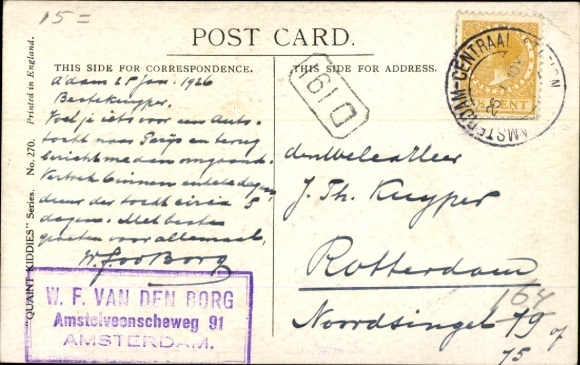 15 =
POST CARD.
THIS SIDE FOR CORRESPONDENCE.
THIS SIDE FOR ADDRESS.
A'dam 25 Jan. 1926
Beste Kuyper.
Voel je iets voor een Auto-
tocht naar Parijs en terug
bericht me dan omgaand.
Vertrek binnen enkele dagen
duur der tocht circa 5
dagen. Met beste
groeten voor allemaal,
W.F. van den Borg
W. F. VAN DEN BORG
Amstelveenscheweg 91
AMSTERDAM.
"QUAINT KIDDIES" Series. No. 270. Printed in England.
D 191
CENT
AMSTERDAM-CENTRAAL STATION
den WelEd. Heer
J. Th. Kuyper
Rotterdam
164
Noordsingel 79
of
75